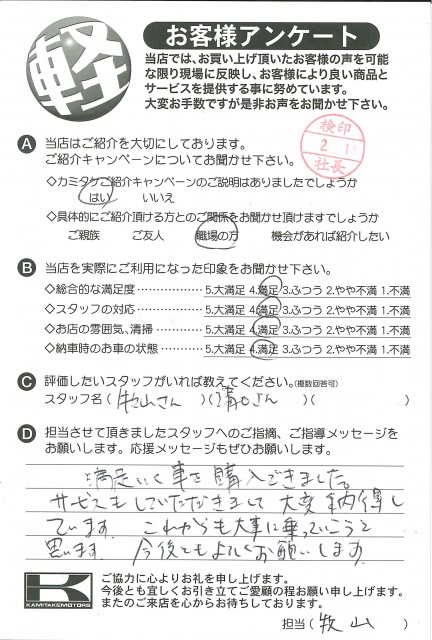 軽
お客様アンケート
当店では、お買い上げ頂いたお客様の声を可能
な限り現場に反映し、お客様により良い商品と
サービスを提供する事に努めています。
大変お手数ですが是非お声をお聞かせ下さい。
検印
2
社長
A 当店はご紹介を大切にしております。
ご紹介キャンペーンについてお聞かせ下さい。
◇カミタケご紹介キャンペーンのご説明はありましたでしょうか
はい いいえ
◇具体的にご紹介頂ける方とのご関係をお聞かせ頂けますでしょうか
ご親族 ご友人 職場の方 機会があれば紹介したい
B 当店を実際にご利用になった印象をお聞かせ下さい。
◇総合的な満足度 ……………… 5.大満足 4.満足 3.ふつう 2.やや不満 1.不満
◇スタッフの対応 ……………… 5.大満足 4.満足 3.ふつう 2.やや不満 1.不満
◇お店の雰囲気、清掃 ………… 5.大満足 4.満足 3.ふつう 2.やや不満 1.不満
◇納車時のお車の状態 ………… 5.大満足 4.満足 3.ふつう 2.やや不満 1.不満
C 評価したいスタッフがいれば教えてください。(複数回答可)
スタッフ名 ( 牧山さん )( 溝口さん )( )
D 担当させて頂きましたスタッフへのご指摘、ご指導メッセージを
お願いします。応援メッセージもぜひお願いします。
満足いく車を購入できました。
サービスもしていただきまして 大変納得し
ています。これからも大事に乗っていこうと
思います。今後ともよろしくお願いします。
KAMITAKEMOTORS
ご協力に心よりお礼を申し上げます。
今後とも宜しくお引き立てご愛顧の程お願い申し上げます。
またのご来店を心からお待ちしております。
担当 ( 牧山 )